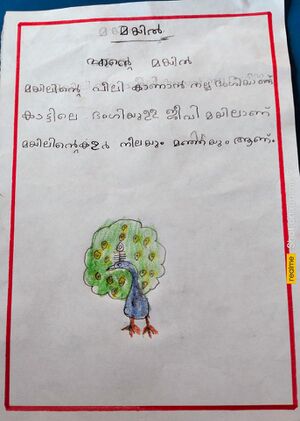 മയിൽ
എന്റെ മയിൽ
മയിലിന്റെ പീലി കാണാൻ നല്ല ഭംഗിയാണ്
കാട്ടിലെ ഭംഗിയുള്ള ജീവി മയിലാണ്
മയിലിന്റെകളർ നീലയും മഞ്ഞയും ആണ്.
realme